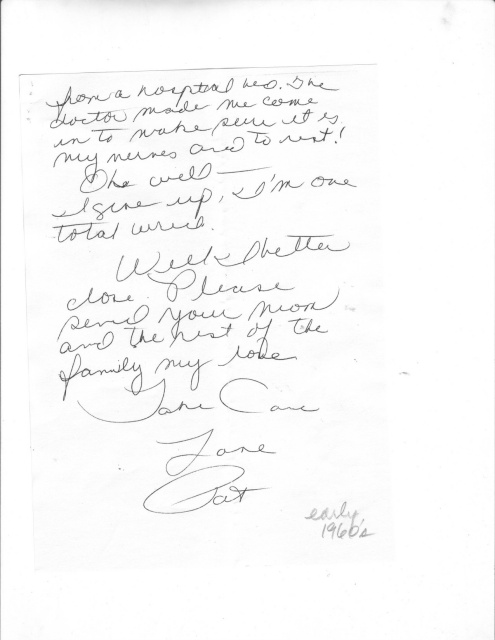 from a hospital bed. The
doctor made me come
in to make sure it is
my nerves and to rest!
Oh well —
I give up, I'm one
total wreck.
Well I better
close. Please
send your mom
and the rest of the
family my love
Take Care
Love
Pat
early
1960's